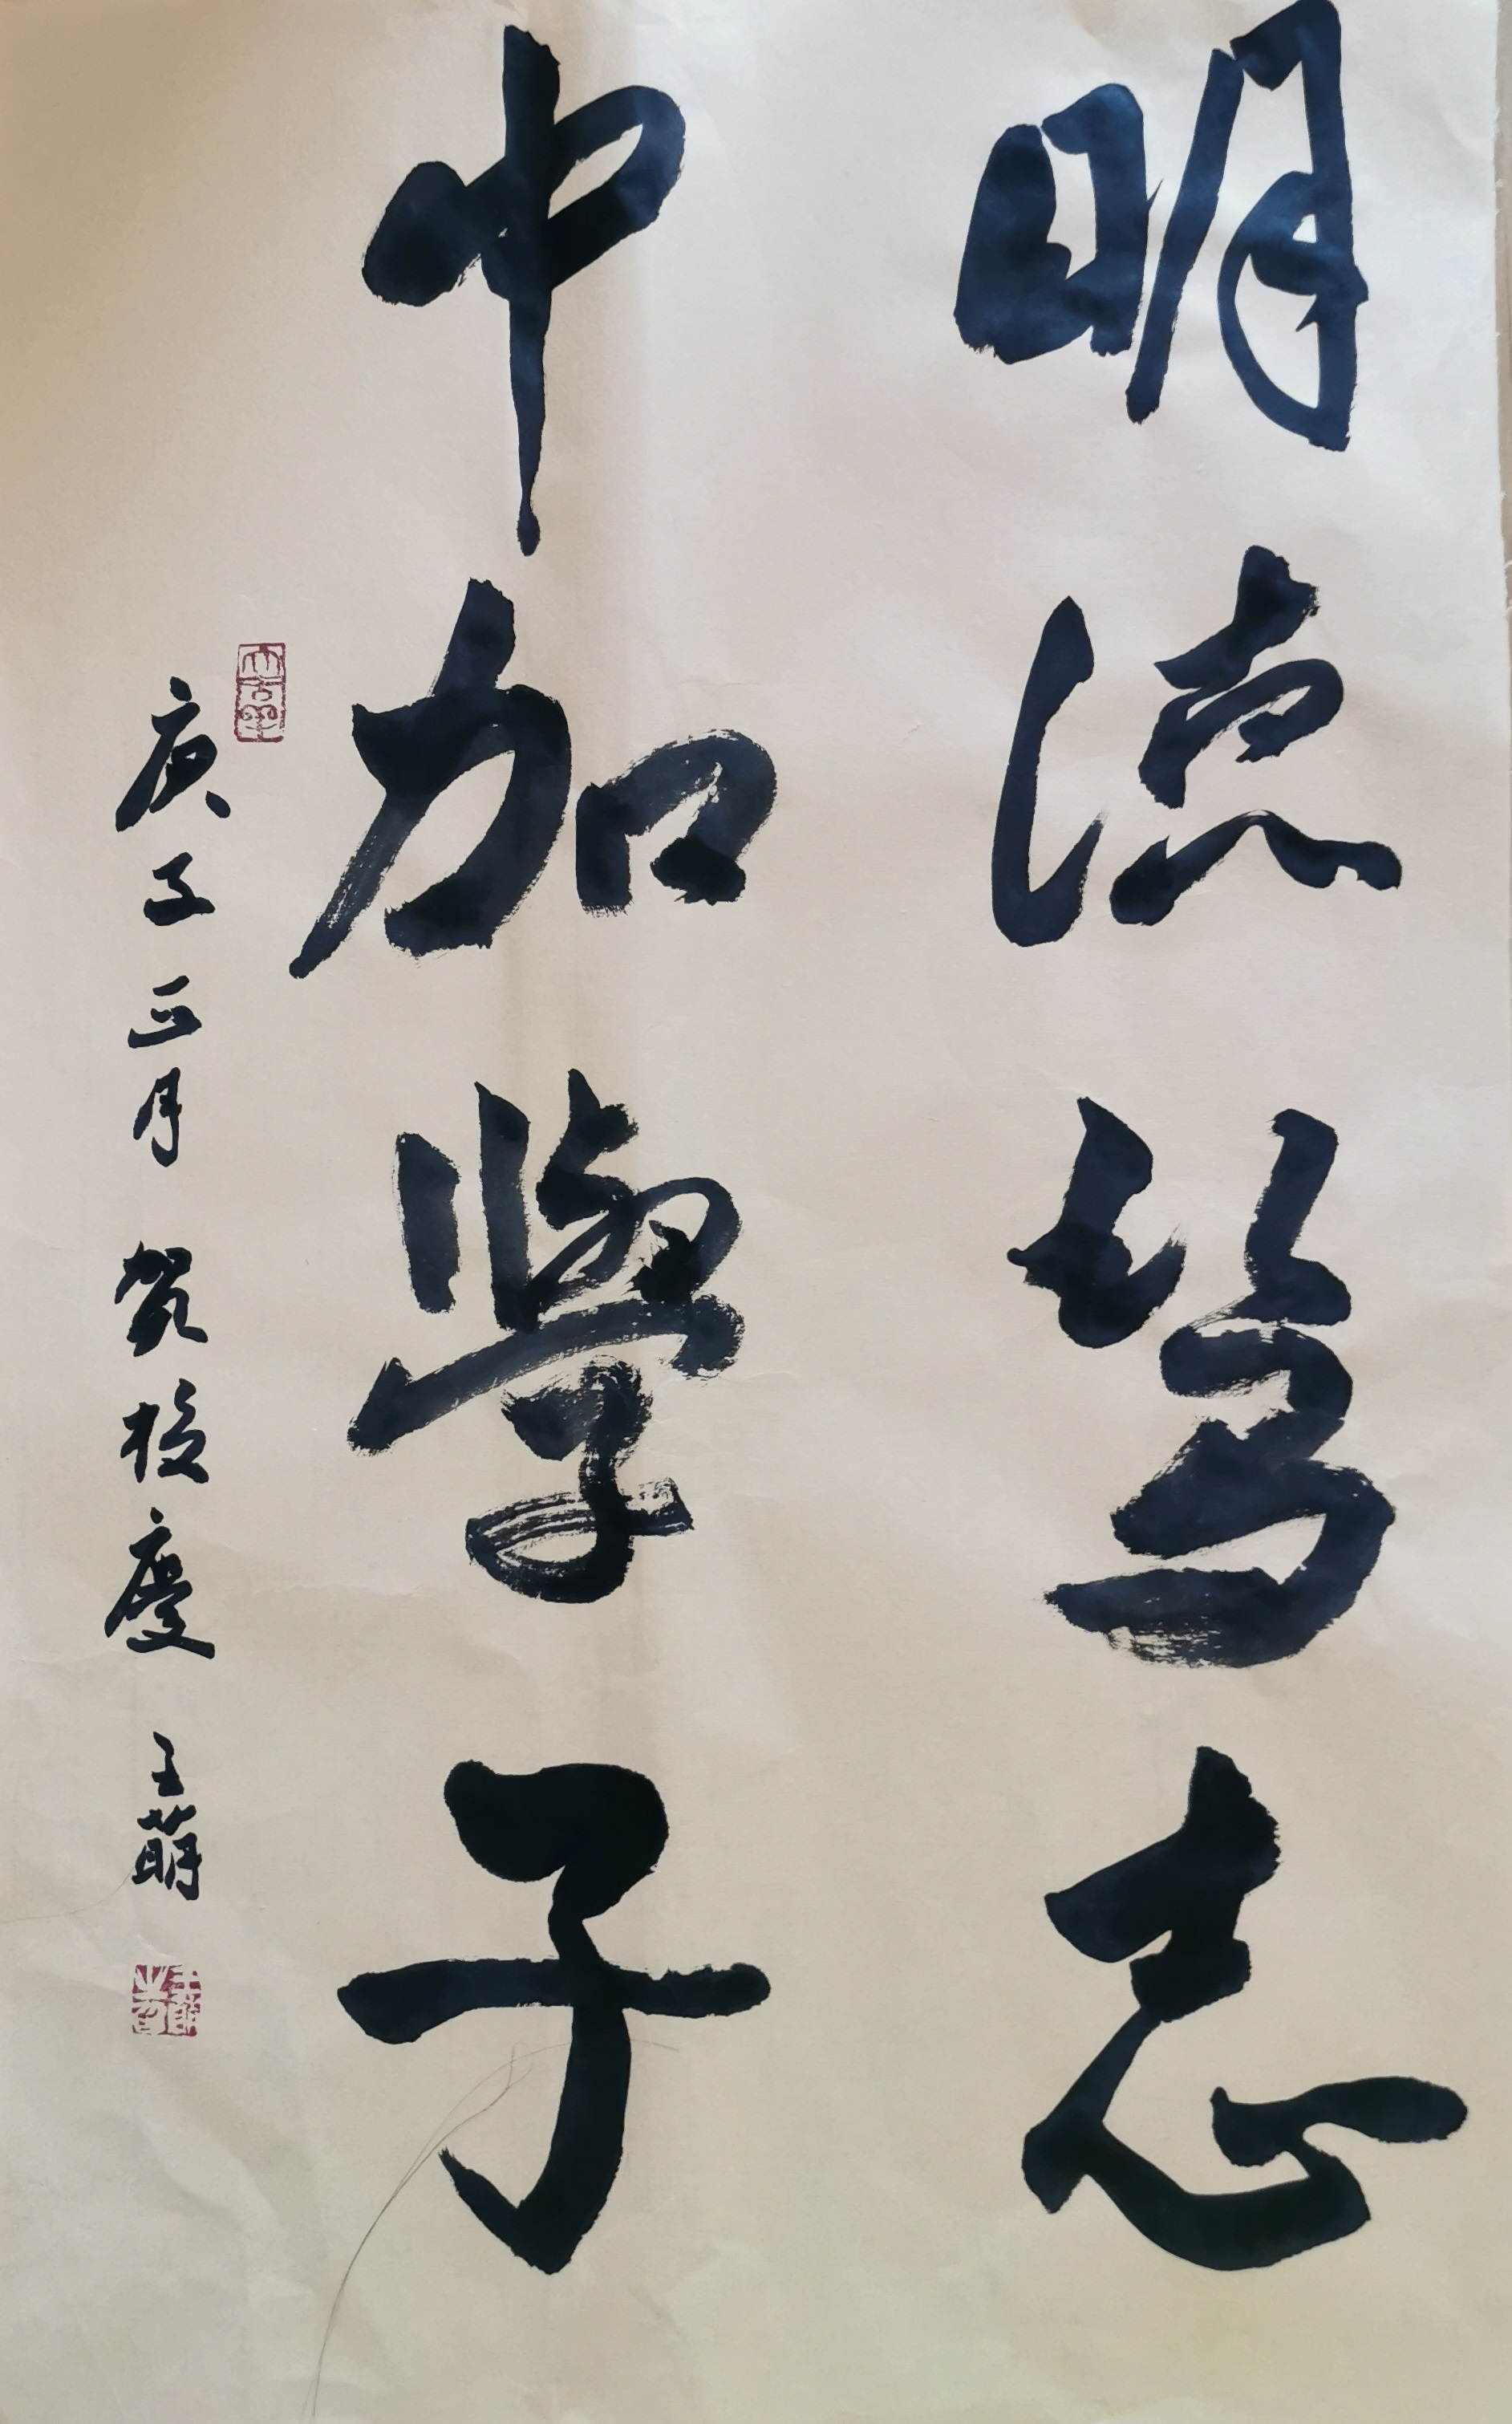 明德笃志
中加學子
庚子正月 贺校慶 王萌